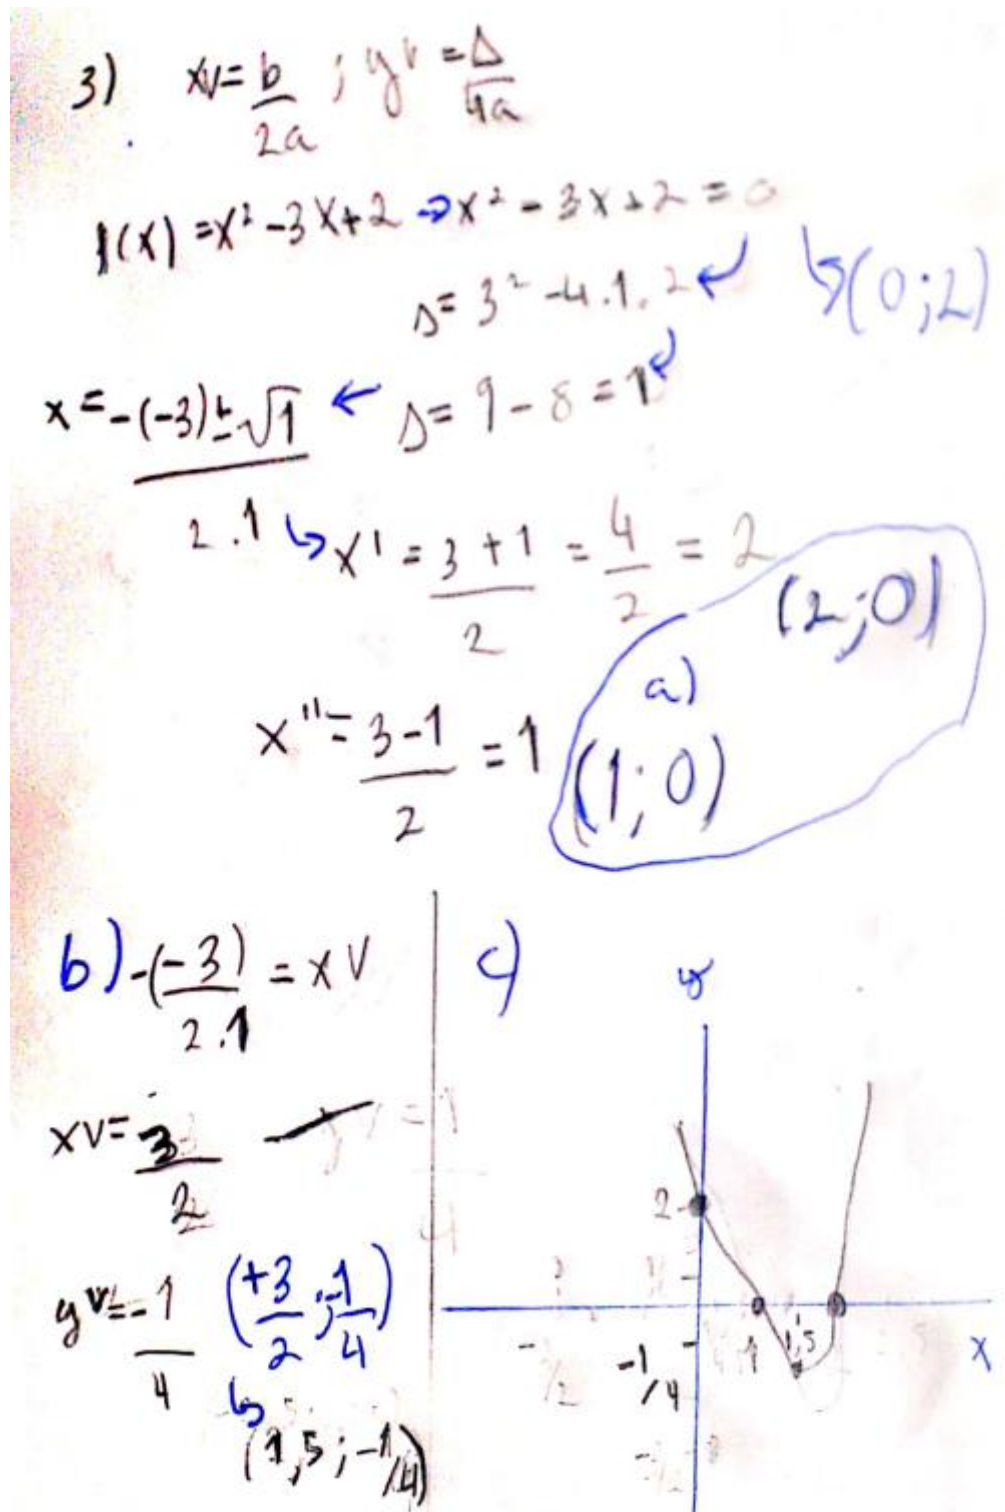 3) xv = b/2a ; yv = Δ/4a
f(x) = x² - 3x + 2 → x² - 3x + 2 = 0
Δ = 3² - 4.1.2 (0;2)
x = -(-3) ± √1 / 2.1 ← Δ = 9 - 8 = 1
x' = 3+1/2 = 4/2 = 2 (2;0)
a)
x'' = 3-1/2 = 1 (1;0)
b) -(-3)/2.1 = xv
xv = 3/2
yv = -1/4 (+3/2 ; -1/4)
(1,5 ; -1/4)
c)
y
2
1 1,5
-1/4
x